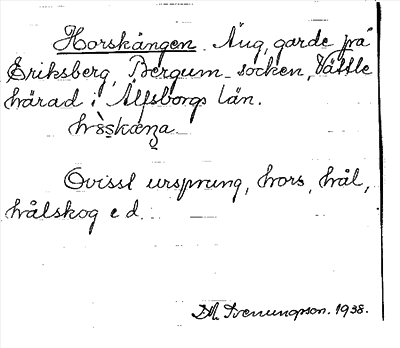 Horskängen. Äng, garde på
Eriksberg, Bergum socken, Vättle
härad i Älfsborgs län.
Ovisst ursprung, hors, hål,
hålskog e d.
1938.